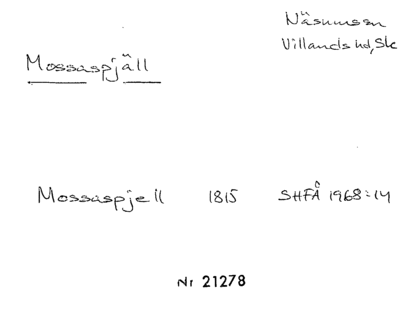 Näsumssn
Villands hd, Sk
Mossaspjäll
Mossaspjell 1815 SHFÅ 1968:14
Nr 21278